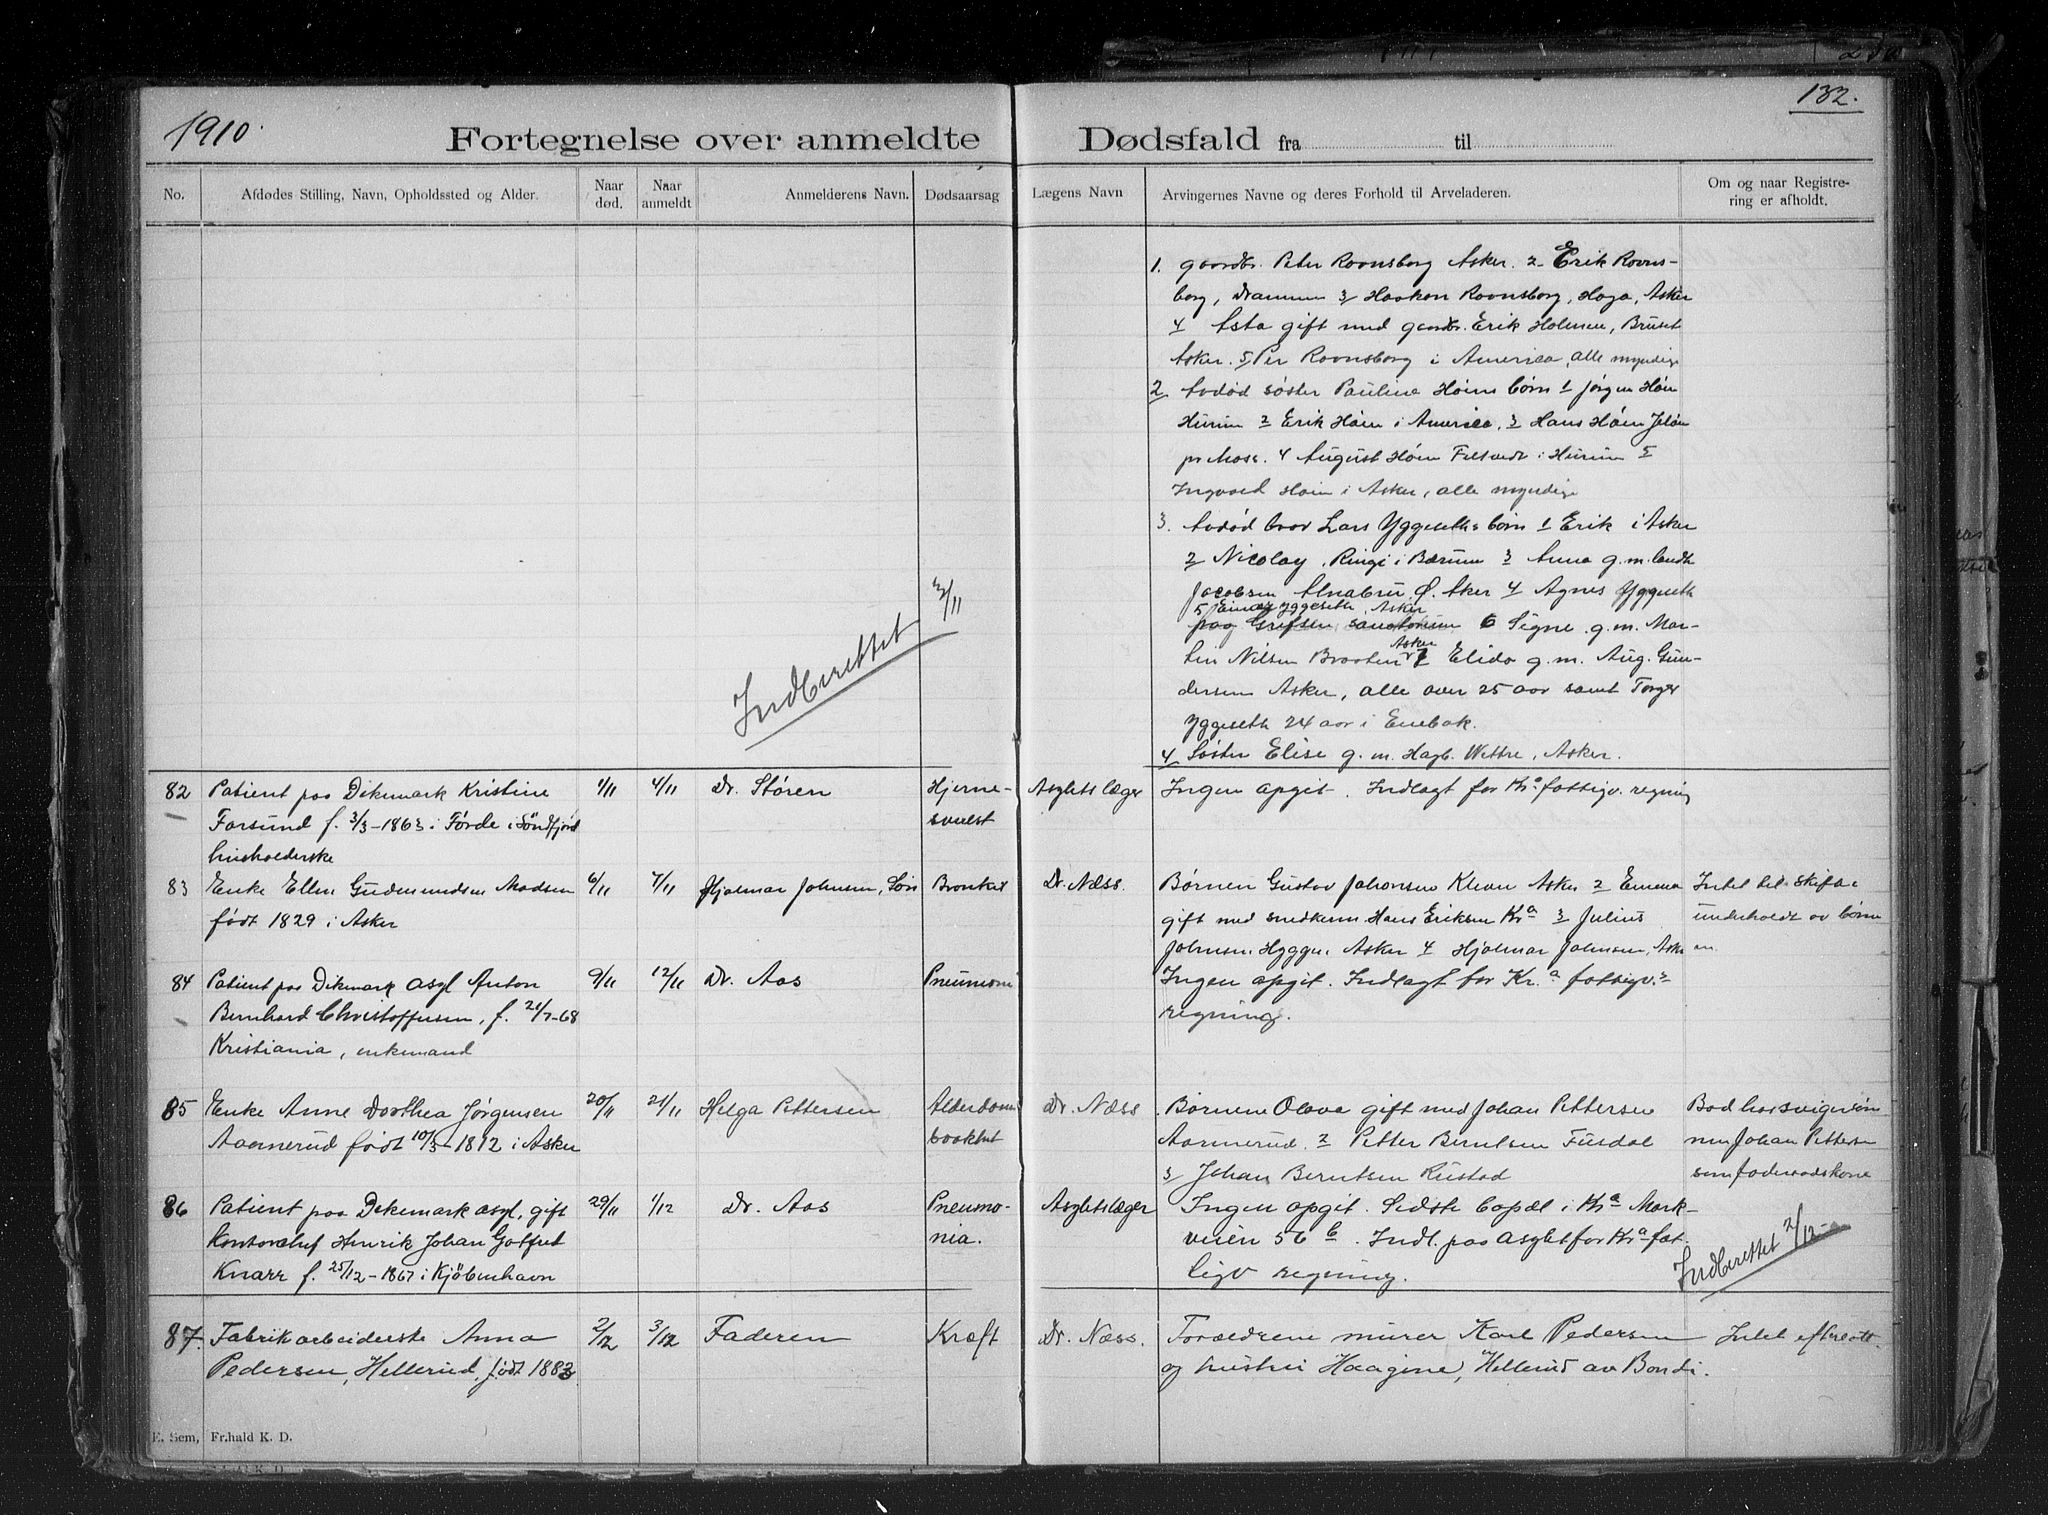 1910.
132.
Fortegnelse over anmeldte Dødsfald fra til
No.
Afdødes Stilling, Navn, Opholdssted og Alder.
Naar død.
Naar anmeldt
Anmelderens Navn.
Dødsaarsag
Lægens Navn
Arvingernes Navne og deres Forhold til Arveladeren.
Om og naar Registre-
ring er afholdt.
1. gaardbr. Peter Rovnsborg Asker. 2 Erik Rovns-
borg, Drammen 3 Haakon Rovnsborg, Haga, Asker
4 Asta gift med gaardbr. Erik Holmen, Bruset
Asker. 5 Per Rovnsborg i America, alle myndige
2 Avdød søster Pauline Høins børn 1 Jørgen Høin
Hurum 2 Erik Høin i America, 3 Hans Høin Jeløen
pr Moss. 4 August Høin i Hurum 5
Ingvald Høin i Asker, alle myndige
3. Avdød bror Lars Yggeseths børn 1 Erik i Asker
2 Nicolay, Ringi i Bærum 3 Anna g.m. landh.
Jacobsen Alnabru, Ø. Aker 4 Agnes Yggeseth
5 Einar Yggeseth, Asker
paa Grefsen sanatorium 6 Signe g.m. Mar-
tin Nilsen Braaten Asker 7 Elida g.m. Aug. Gun-
dersen Asker, alle over 25 aar samt Torger
Yggeseth 24 aar i Enebak.
4 Søster Elise g.m. Hagb. Wettre, Asker.
Indberettet 3/11
82
Patient paa Dikemark Kristine
Farsund f. 3/3-1863 i Førde i Söndfjord
husholderske
1/11
4/11
Dr. Støren
Hjerne-
svulst
Asylets læger
Ingen opgit. Indlagt for Kr.a fattigv. regning
83
Enke Ellen Gudmundsen Madsen
født 1829 i Asker
6/11
7/11
Hjalmar Johnsen, Søn
Bronkit
Dr. Næss.
Børnene Gustav Johansen Asker 2 Emma
gift med snedkeren Hans Eriksen Kr.a 3 Julius
Johnsen Hyggen, Asker 4 Hjalmar Johnsen, Asker
Intet til skifte
underholdt av børne
n.
84
Patient paa Dikemark asyl Anton
Bernhard Christoffersen, f. 21/7-68
Kristiania, enkemand
9/11
12/11
Dr. Aas
Pneumoni
Ingen opgit. Indlagt for Kr.a fattigv.s
regning.
85
Enke Anne Dorthea Jørgensen
Aamerud født 10/3-1812 i Asker
20/11
21/11
Helga Pettersen
Alderdom
Dr. Næss
Børnene Olava gift med Johan Pettersen
Aamerud. 2 Petter Berntsen Fusdal
3 Johan Berntsen Rustad
Bod hos svigersøn
nen Johan Pettersen
som føderaadskone
86
Patient paa Dikemark asyl, gift
Kontorchef Henrik Johan Gotfred
Knarr f. 25/12-1867 i Kjöbenhavn
29/11
1/12
Dr. Aas
Pneumo-
nia.
Asylets læger
Ingen opgit. Sidste bopæl i Kr.a Mark-
veien 56 b. Indl. paa asylet for Kr.a fat-
tigv regning.
Indberettet 2/12
87.
Fabrikarbeiderske Anna
Pedersen, Hellerud, født 1883
2/12
3/12
Faderen
Kræft
Dr. Næss.
Forældrene murer Karl Pedersen
og hustru Haagine, Hellerud av Bondi.
Intet efterlatt.
E. Sem, Fr.hald K. D.